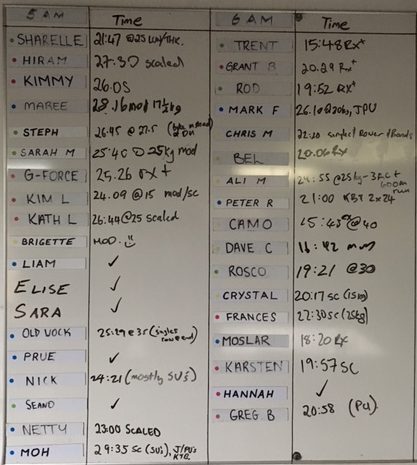 5 AM Time
SHARELLE 21:47 @25
HIRAM 27:30 scaled
KIMMY 26:05
MAREE 28:16 mod 17½kg
STEPH 26:45 @ 27.5
SARAH M 25:40 @ 25kg mod
G-FORCE 25.26 rx +
KIM L 24.09 @ 15 mod/sc
KATH L 26:44 @25 scaled
BRIGETTE MOD
LIAM ✓
ELISE ✓
SARA ✓
OLD VOCK 25:29 @ 35 (singles
PRUE ✓
NICK 24:21 (mostly SU's)
SEANO ✓
NETTY 23:00 SCALED
MOH 29:35 sc (SU's), J/PU's
6 AM Time
TRENT 15:48 Rx+
GRANT B 20.29 Rx+
ROD 19:52 RX+
MARK F 26.10 @20kg, JPU
CHRIS M 22:20 Rower + Bands
BEL 20.06 RX
ALI M @25kg
PETER R 21:00 KB 2x24
CAMO 15:43 @40
DAVE C 16:42
ROSCO 19:21 @30
CRYSTAL 20:17 sc (15kg)
FRANCES 22:30 sc (25kg)
MOSLAR 18:20 Rx
KARSTEN 19:57 SC
HANNAH ✓
GREG B 20:58 (PU)